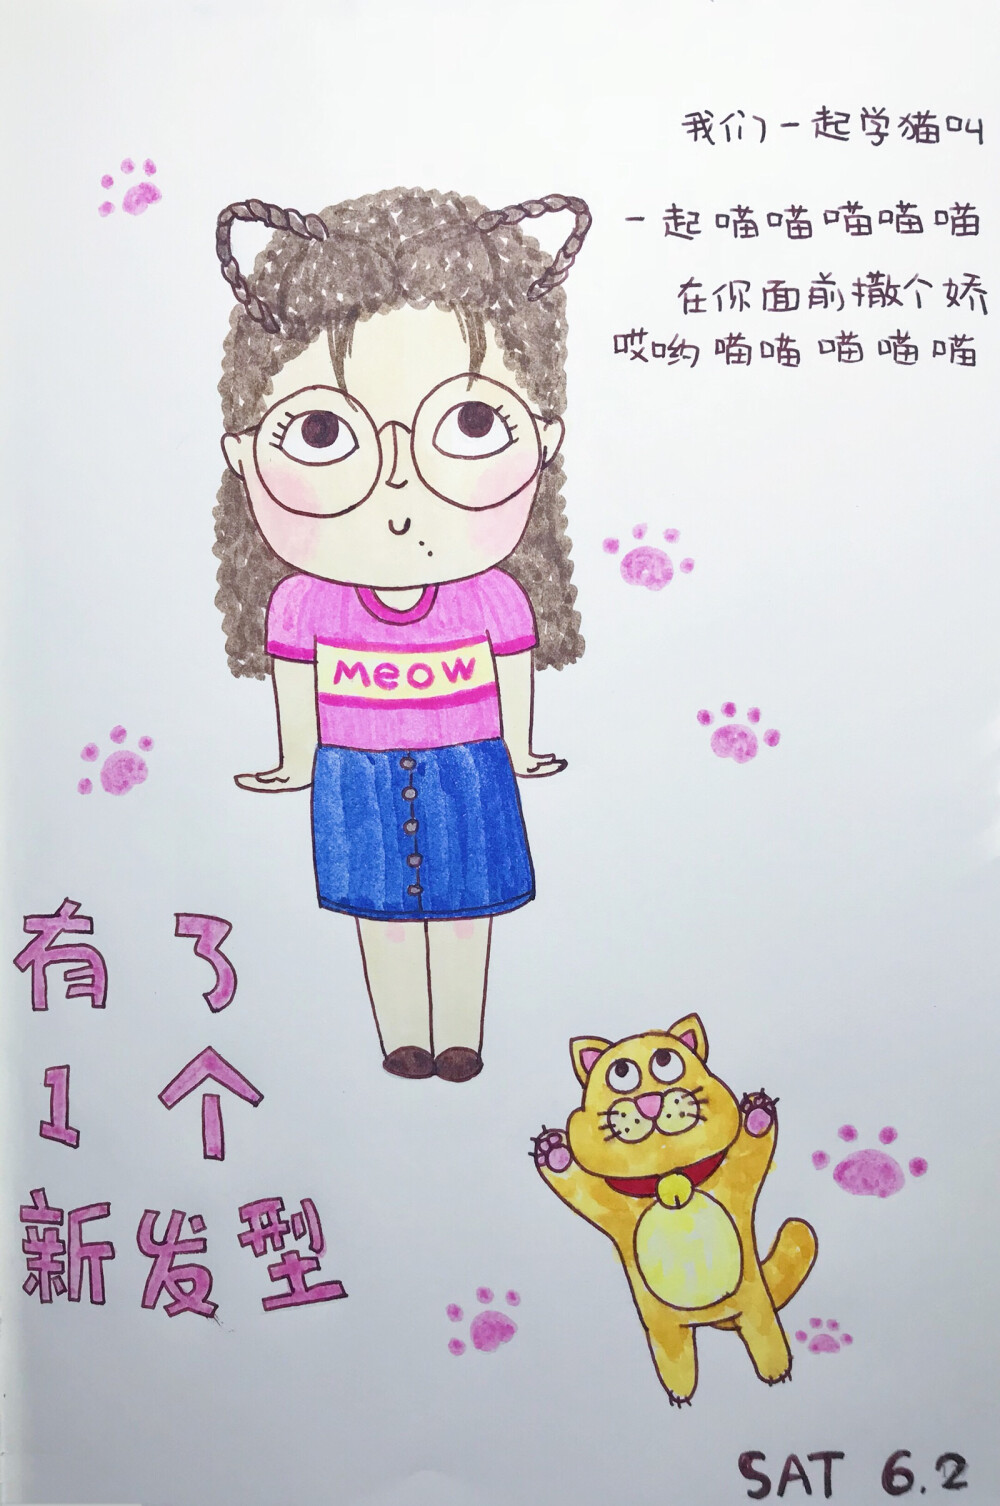 我们一起学猫叫
一起喵喵喵喵喵
在你面前撒个娇
哎哟喵喵喵喵喵
meow
有了
1个
新发型
SAT 6.2